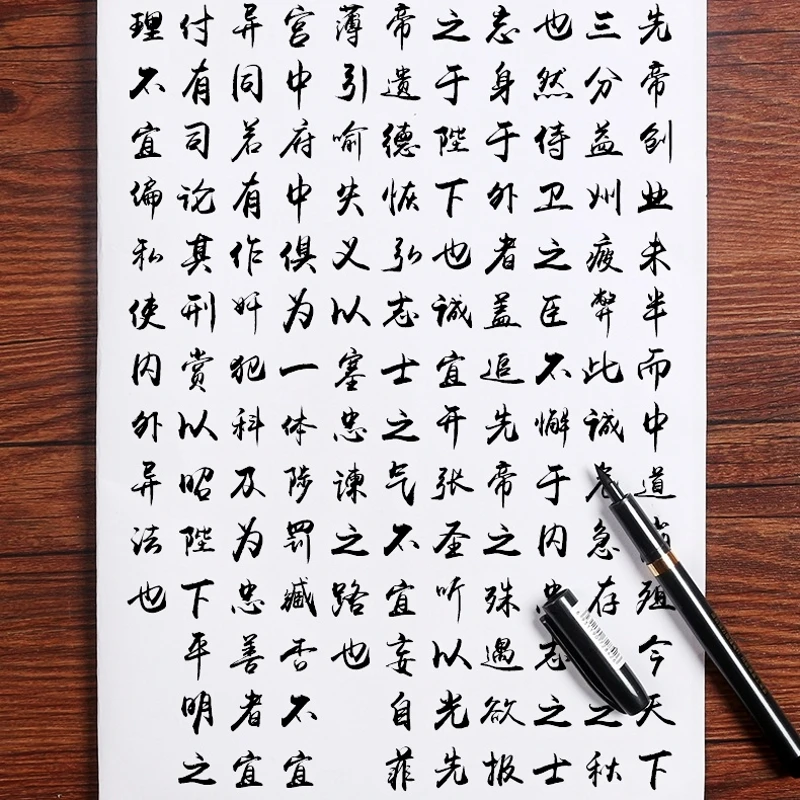 先帝创业未半而中道殂今天下
三分益州疲弊此诚危急存之秋
也然侍卫之臣不懈于内忠志之士
忘身于外者盖追先帝之殊遇欲报
之于陛下也诚宜开张圣听以光先
帝遗德恢弘志士之气不宜妄自菲
薄引喻失义以塞忠谏之路也
宫中府中俱为一体陟罚臧否不宜
异同若有作奸犯科及为忠善者宜
付有司论其刑赏以昭陛下平明之
理不宜偏私使内外异法也